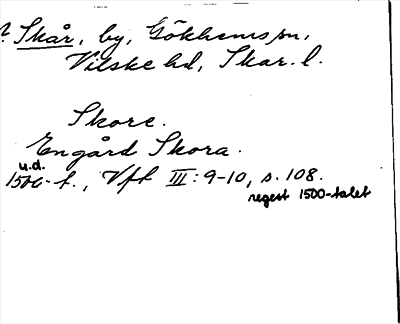 ? Skår, by, Gökhems sn,
Vilske hd, Skar. l.
Skore.
Engård Skora.
u.d.
1506-t., Vft III: 9-10, s. 108.
regest 1500-talet